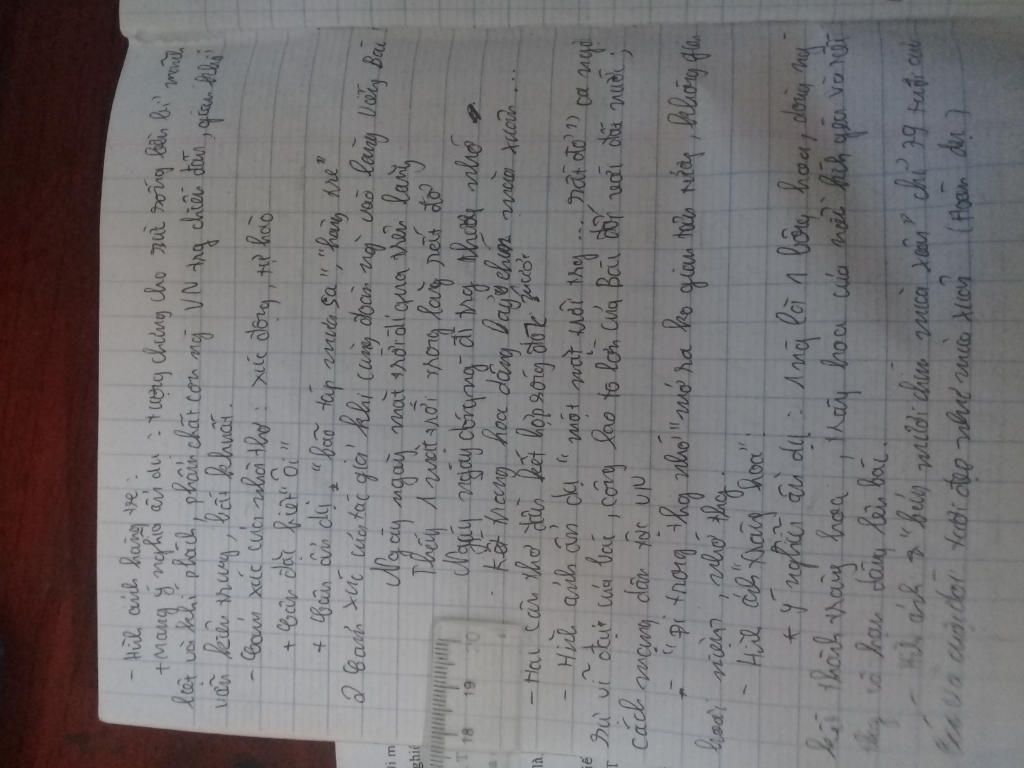 - Hình ảnh hàng tre:
+ Mang ý nghĩa ẩn dụ: tượng trưng cho sức sống bền bỉ mãnh
liệt và khí phách, phẩm chất con ng VN trg chiến đấu, gian khổ
vẫn kiên trung, bất khuất.
- Cảm xúc của nhà thơ: xúc động, tự hào
+ Câu đặc biệt "Ôi"
+ Câu ẩn dụ, "bão táp mưa sa", "hàng tre"
2 Cảm xúc của tác giả khi cùng đoàn ng vào lăng viếng Bác
Ngày ngày mặt trời đi qua trên lăng
Thấy 1 mặt trời trong lăng rất đỏ
Ngày ngày dòng ng đi trg thương nhớ
Kết tràng hoa dâng bảy chín mùa xuân...
- Hai câu thơ đầu kết hợp sóng đôi
- Hình ảnh ẩn dụ "mặt trời trg ... rất đỏ" ca ngợi
sự vĩ đại của Bác, công lao to lớn của Bác đối với đất nước,
cách mạng, dân tộc VN
- "Đi trong thg nhớ" mở ra ko gian tâm niệm, không gian
hoài niệm, nhớ thg.
- Hình ảnh "tràng hoa":
+ Ý nghĩa ẩn dụ: 1 ng là 1 bông hoa, dòng ng
kết thành tràng hoa, tràng hoa của niềm kính yêu và biết
thg vô hạn dâng lên Bác.
- Hình ảnh "bảy mươi chín mùa xuân" chỉ 79 tuổi của
Bác và cuộc đời tươi đẹp như mùa xuân (Hoán dụ)
18 19 20